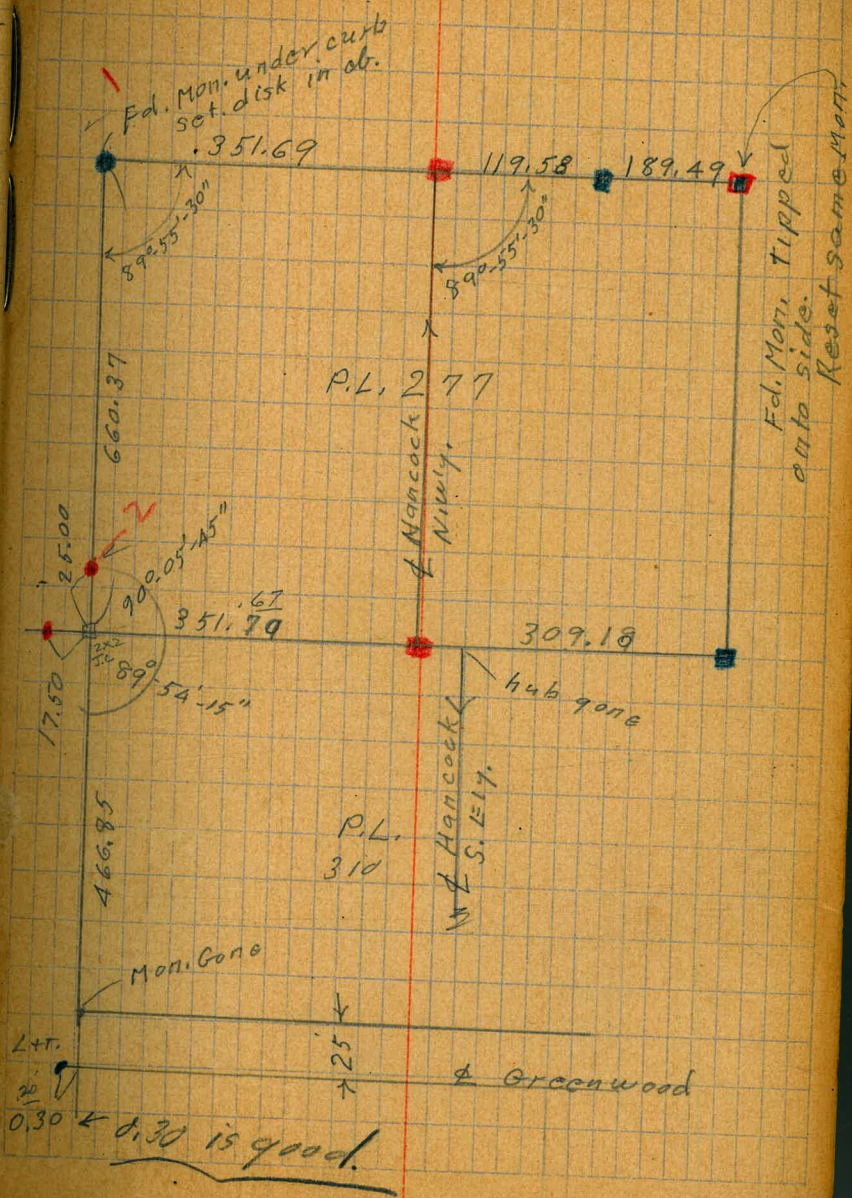 Fd. Mon. under curb
set. disk in ob.
351.69
119.58
189.49
89°-55'-30"
89°-55'-30"
Fd. Mon. Tipped
onto side.
Reset same Mon.
660.37
P.L. 277
℄ Hancock
N.W'ly.
25.00
2
90°-05'-45"
.67
351.79
309.18
89°-54'-15"
17.50
hub gone
℄ Hancock
S. Ely.
466.85
P.L.
310
Mon. Gone
L+T.
25
℄ Greenwood
0.30
0.30 is good.